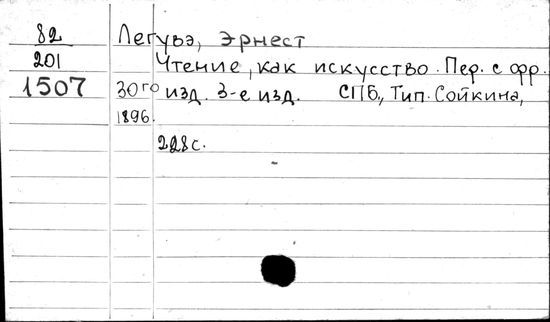 82
201
1507
Легувэ, Эрнест
Чтение, как искусство. Пер. с фр.
30го изд. 3-е изд. СПБ, Тип. Сойкина,
1896.
228с.